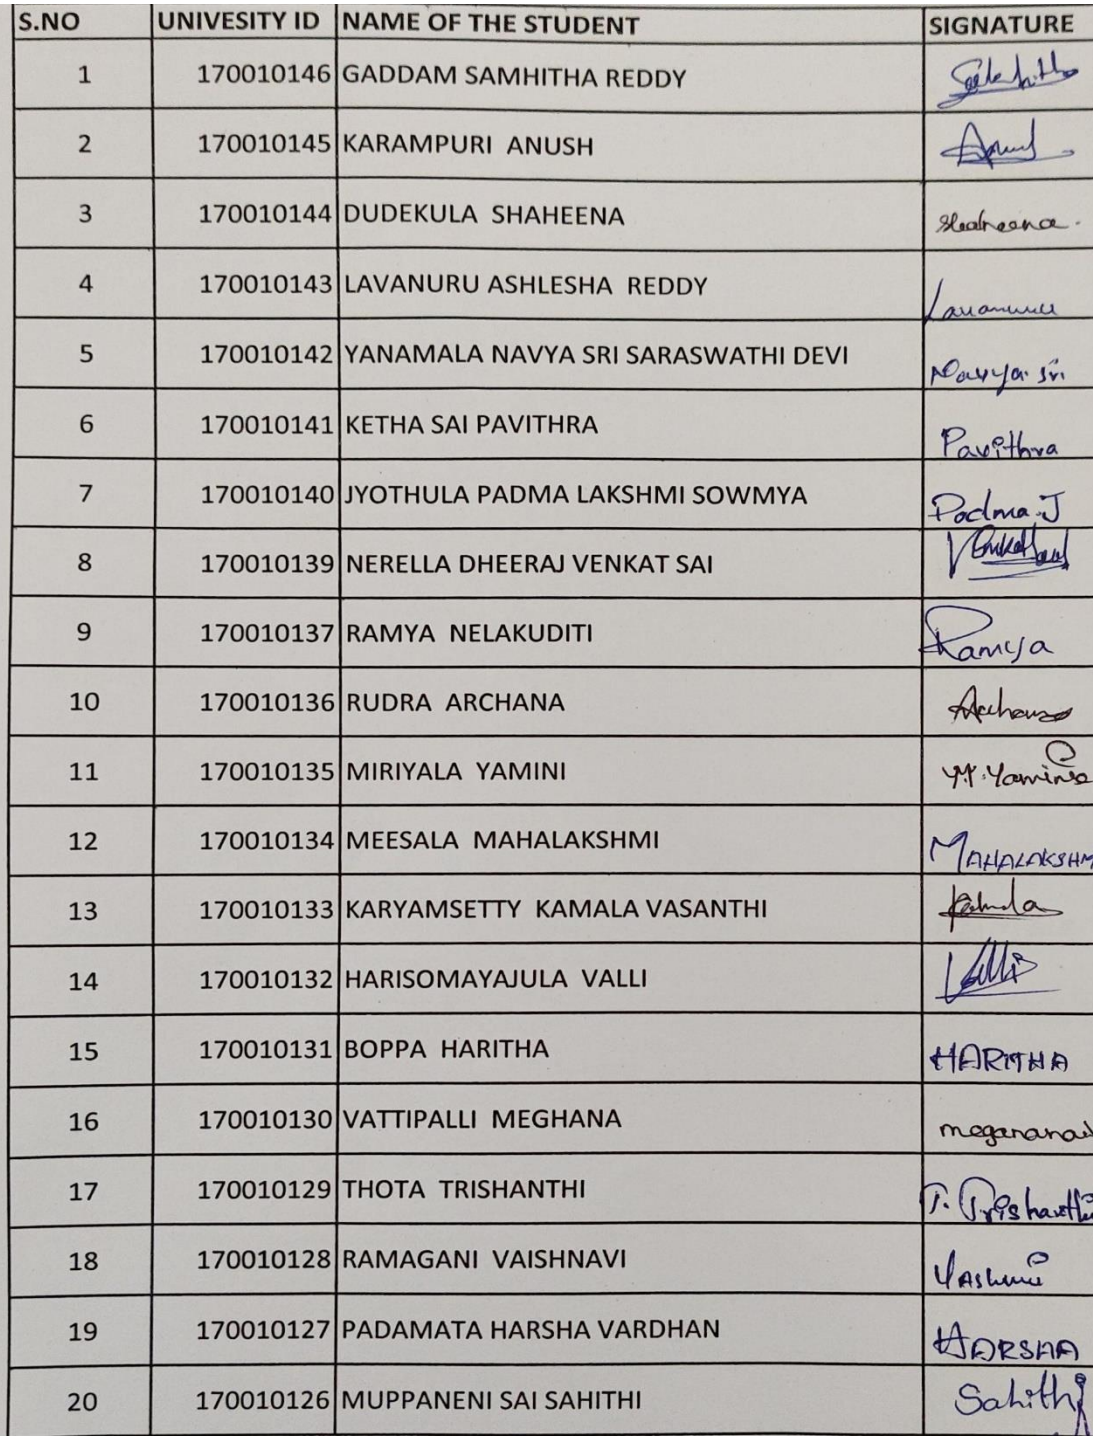 S.NO UNIVESITY ID NAME OF THE STUDENT SIGNATURE
1 170010146 GADDAM SAMHITHA REDDY
2 170010145 KARAMPURI ANUSH
3 170010144 DUDEKULA SHAHEENA Shaheena.
4 170010143 LAVANURU ASHLESHA REDDY Lavanuru
5 170010142 YANAMALA NAVYA SRI SARASWATHI DEVI Navya sri
6 170010141 KETHA SAI PAVITHRA Pavithra
7 170010140 JYOTHULA PADMA LAKSHMI SOWMYA Padma.J
8 170010139 NERELLA DHEERAJ VENKAT SAI
9 170010137 RAMYA NELAKUDITI Ramya
10 170010136 RUDRA ARCHANA
11 170010135 MIRIYALA YAMINI M.Yamini
12 170010134 MEESALA MAHALAKSHMI MAHALAKSHM
13 170010133 KARYAMSETTY KAMALA VASANTHI
14 170010132 HARISOMAYAJULA VALLI Valli
15 170010131 BOPPA HARITHA HARITHA
16 170010130 VATTIPALLI MEGHANA
17 170010129 THOTA TRISHANTHI T. Trishanthi
18 170010128 RAMAGANI VAISHNAVI
19 170010127 PADAMATA HARSHA VARDHAN HARSHA
20 170010126 MUPPANENI SAI SAHITHI Sahithi